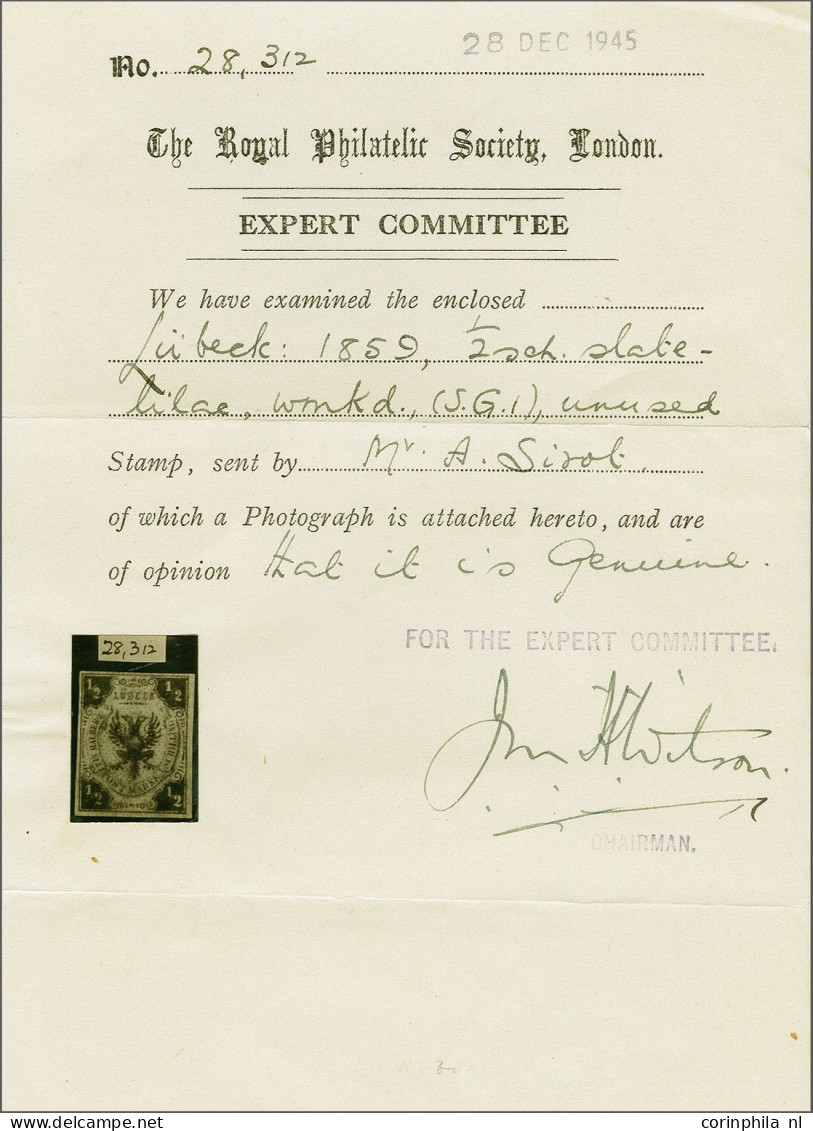 28 DEC 1945
No. 28,312
The Royal Philatelic Society, London.
EXPERT COMMITTEE
We have examined the enclosed
Lübeck: 1859, ½ sch. slate-
lilac, wmkd., (S.G.1), unused
Stamp, sent by Mr. A. Sirot.
of which a Photograph is attached hereto, and are
of opinion that it is Genuine.
FOR THE EXPERT COMMITTEE.
28,312
½ ½
LUBECK
POSTMARKE
½ ½
Jn HWilson.
CHAIRMAN.
corinphila nl